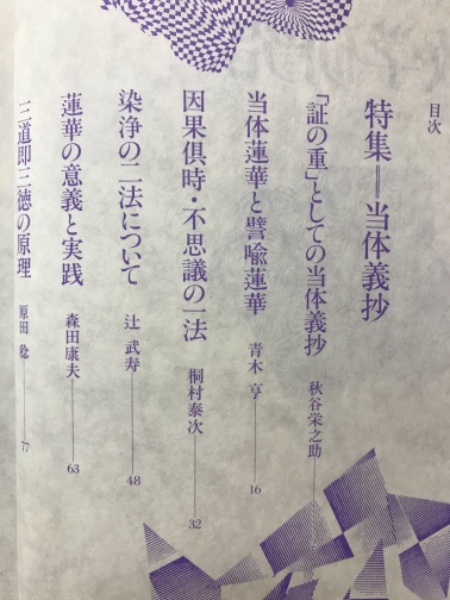 目次
特集=当体義抄
「証の重」としての当体義抄 秋谷栄之助
当体蓮華と譬喩蓮華 青木 亨 16
因果倶時・不思議の一法 桐村泰次 32
染浄の二法について 辻 武寿 48
蓮華の意義と実践 森田康夫 63
三道即三徳の原理 原田 稔 77